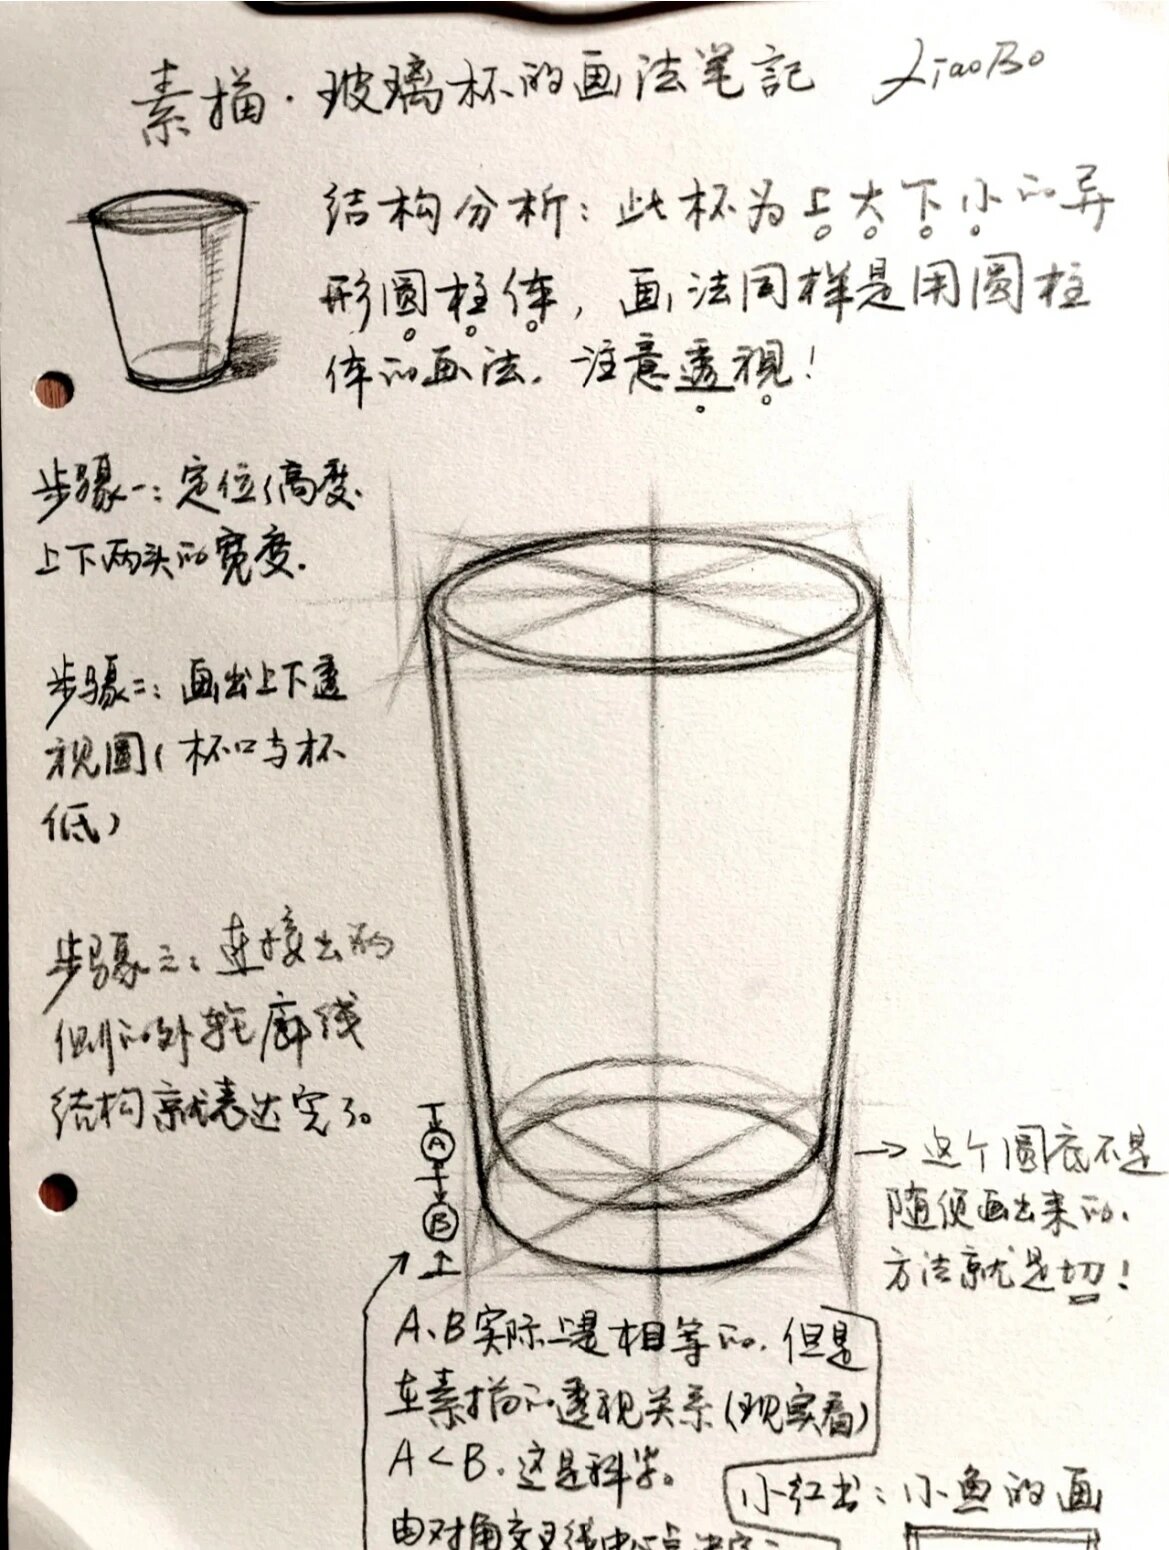 素描·玻璃杯的画法笔記
XiaoBo
结构分析：此杯为上大下小的异
形圆柱体，画法同样是用圆柱
体的画法。注意透视！
步骤一：定位（高度.
上下两头的宽度.
步骤二：画出上下透
视圖（杯口与杯
低）
步骤三：连接出的
侧的外轮廓线
结构就表达完了。
A
B
→这个圆底不是
随便画出来的.
方法就是切！
A、B实际上是相等的.但是
在素描的透视关系（现实看）
A<B.这是科学。
小红书：小鱼的画
由对角交叉线中心点决定